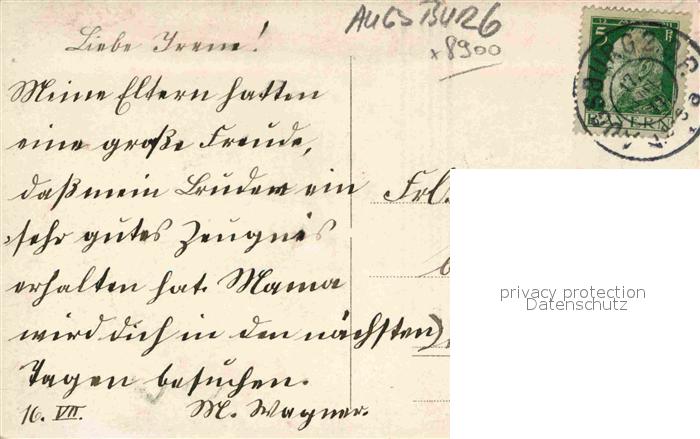 AUGSBURG
x 8900
Liebe Irene!
Meine Eltern hatten
eine große Freude,
daß mein Bruder ein
sehr gutes Zeugnis
erhalten hat. Mama
wird dich in den nächsten
Tagen besuchen.
16. VII. M. Wagner.
Frl.
5
BAYERN
privacy protection
Datenschutz